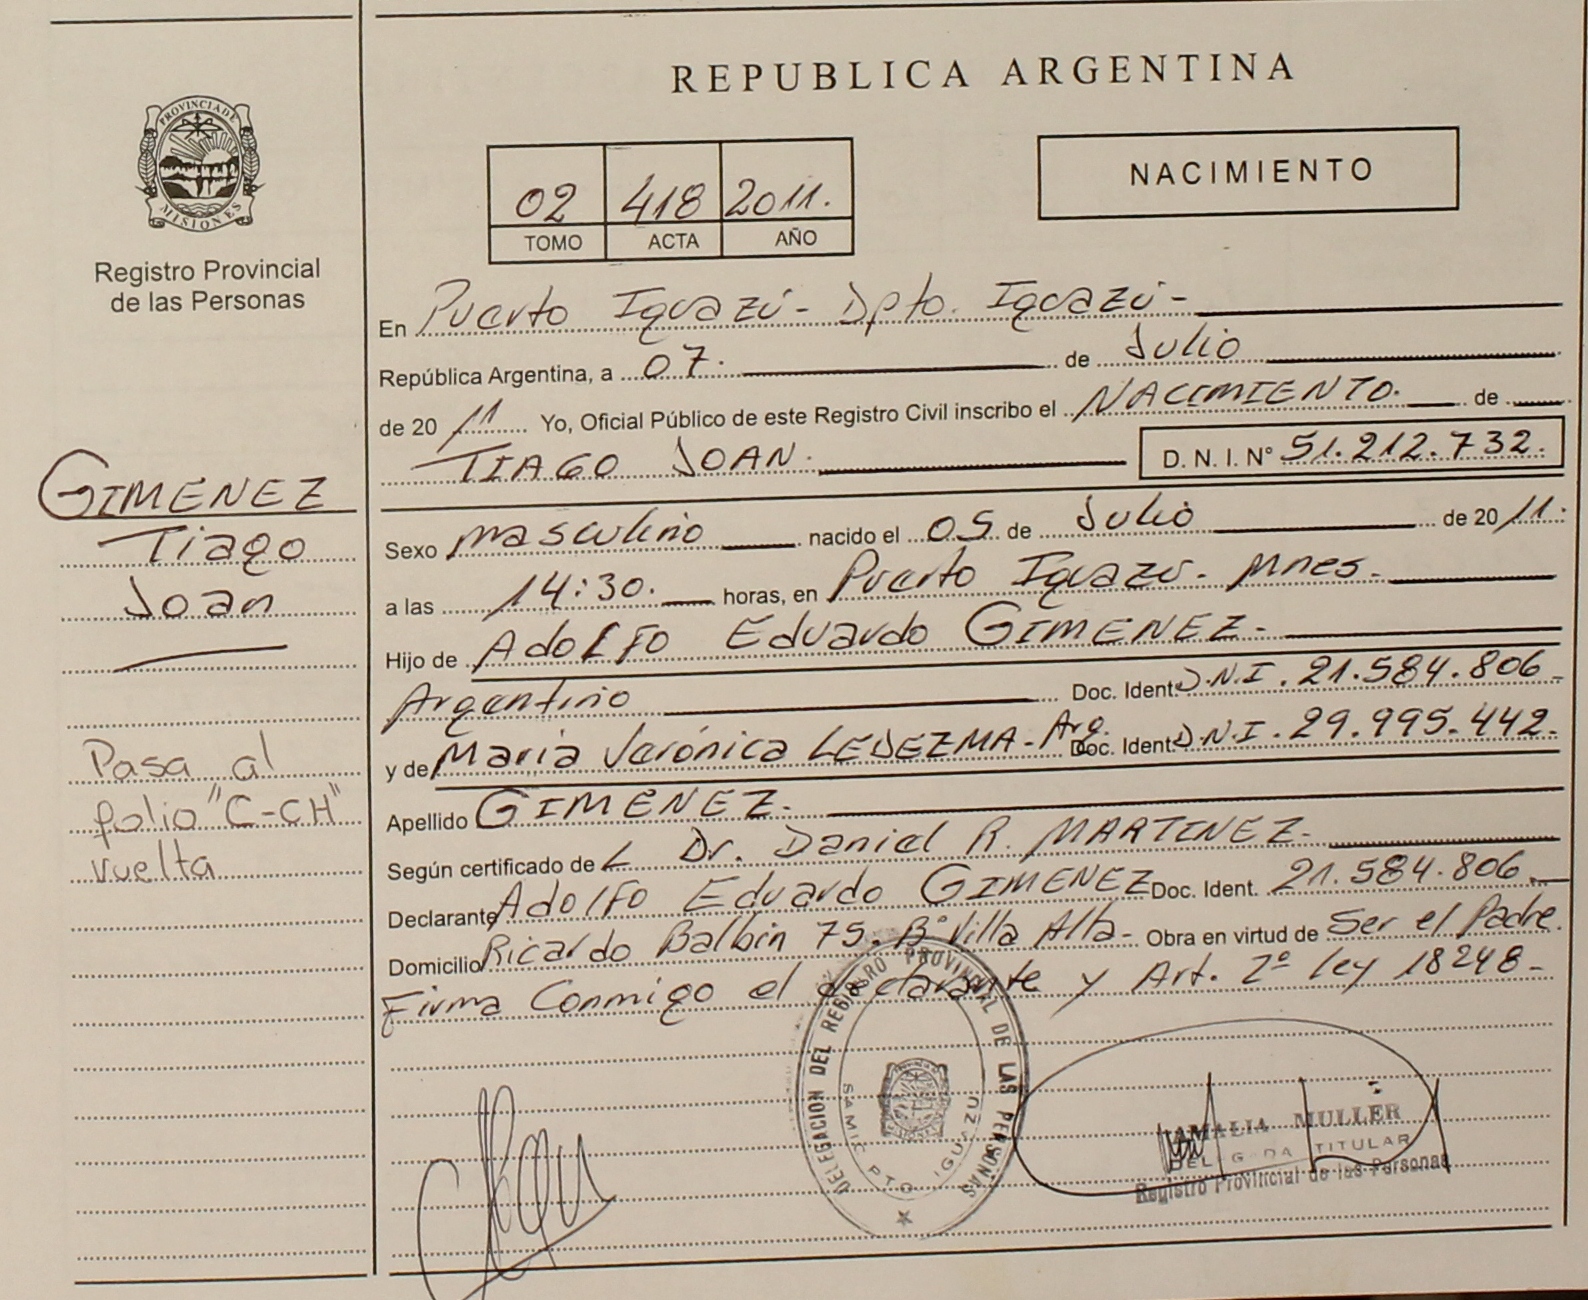 REPUBLICA ARGENTINA
PROVINCIA DE MISIONES
Registro Provincial
de las Personas
NACIMIENTO
02 418 2011.
TOMO ACTA AÑO
En Puerto Iguazú - Dpto. Iguazú -
República Argentina, a 07. de Julio
de 20 11 Yo, Oficial Público de este Registro Civil inscribo el NACIMIENTO. de
TIAGO JOAN. D. N. I. Nº 51.212.732.
GIMENEZ
Tiago
Joan
Sexo masculino nacido el 05 de Julio de 20 11.
a las 14:30. horas, en Puerto Iguazú - Mnes.-
Hijo de Adolfo Eduardo GIMENEZ-
Argentino Doc. Ident. D.N.I. 21.584.806-
y de María Verónica LEDEZMA - Arg. Doc. Ident. D.N.I. 29.995.442-
Pasa al
folio "C-CH"
vuelta
Apellido GIMENEZ-
Según certificado de L Dr. Daniel R. MARTINEZ-
Declarante Adolfo Eduardo GIMENEZ Doc. Ident. 21.584.806.-
Domicilio Ricardo Balbin 75. Bº Villa Alta- Obra en virtud de Ser el Padre.
Firma Conmigo el declarante y Art. 2º ley 18248-
DELEGACION DEL REGISTRO PROVINCIAL DE LAS PERSONAS
SAMIC PTO IGUAZU
AMALIA MULLER
DELEGADA TITULAR
Registro Provincial de las Personas